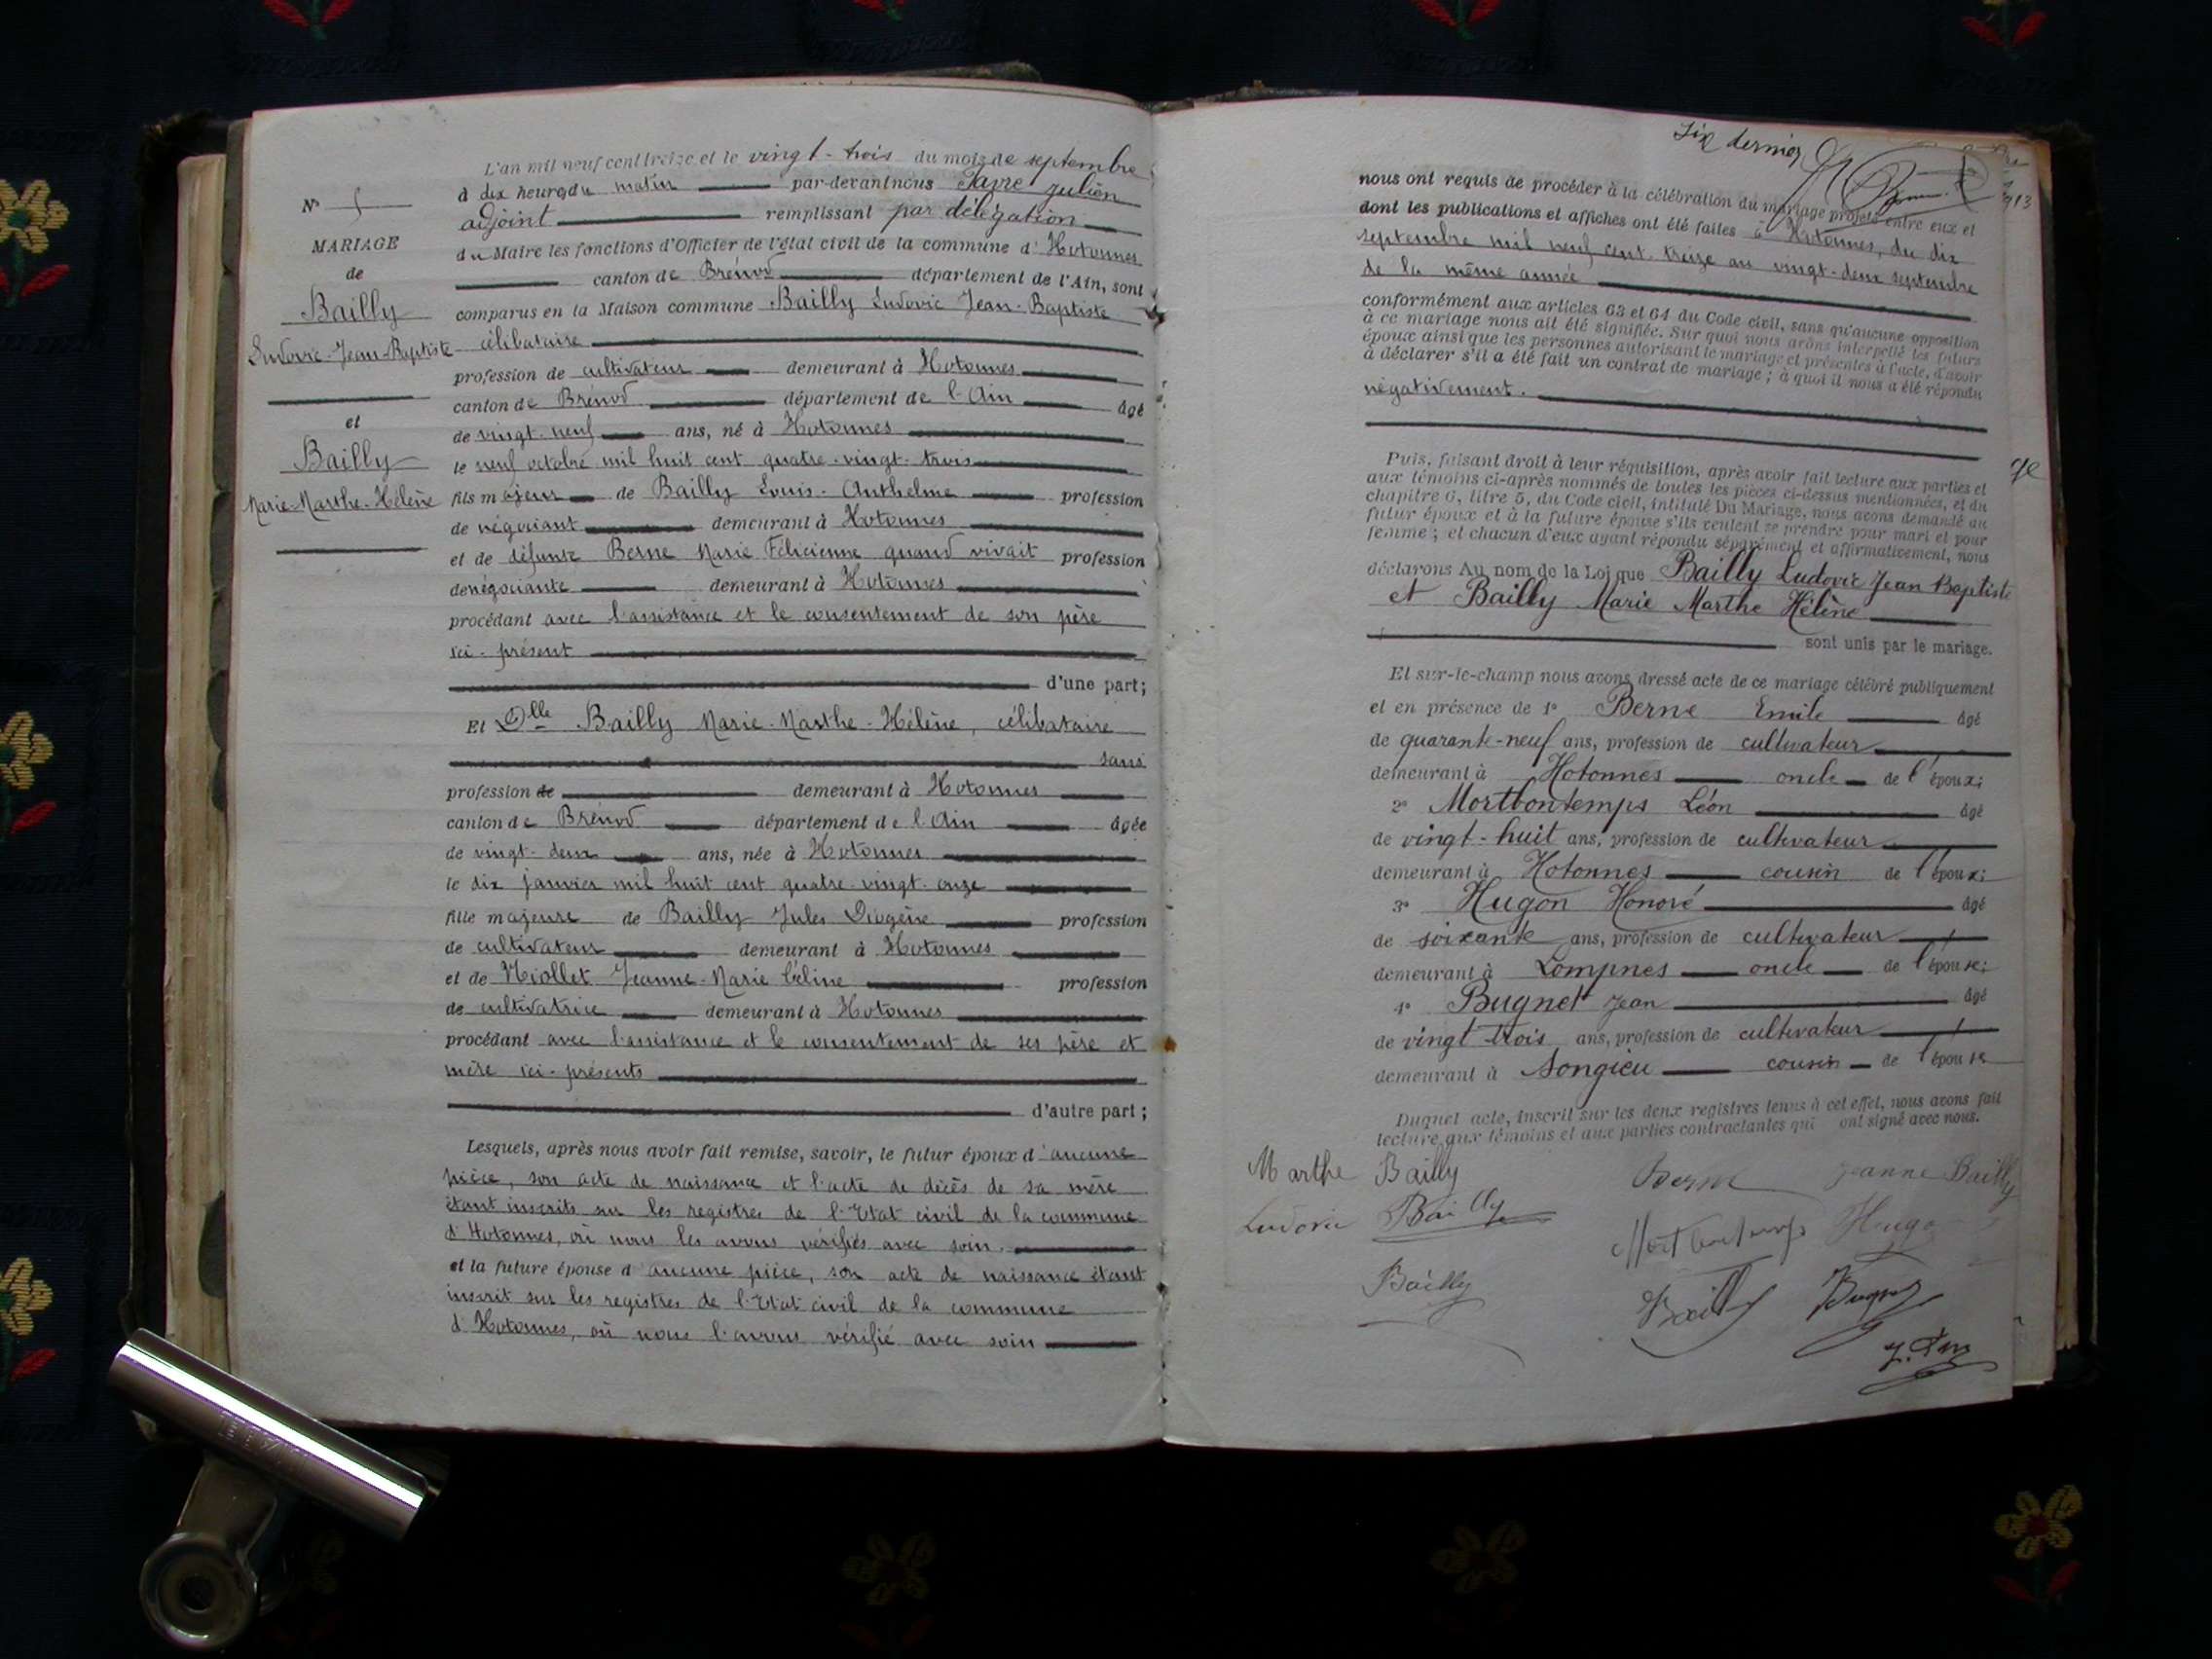 N°
MARIAGE
de
Bailly
Ludovic-Jean-Baptiste
et
Bailly
Marie-Marthe-Hélène
L'an mil neuf cent treize et le vingt-trois du mois de septembre
à dix heures du matin par-devant nous Julien
adjoint remplissant par délégation
du Maire les fonctions d'Officier de l'état civil de la commune d'Hotonnes
canton de Brénod département de l'Ain, sont
comparus en la Maison commune Bailly Ludovic Jean-Baptiste
célibataire
profession de cultivateur demeurant à Hotonnes
canton de Brénod département de l'Ain âgé
de vingt-neuf ans, né à Hotonnes
le neuf octobre mil huit cent quatre-vingt-trois
fils majeur de Bailly Louis-Anthelme profession
de négociant demeurant à Hotonnes
et de défunte Berne Marie Félicienne quand vivait profession
de négociante demeurant à Hotonnes
procédant avec l'assistance et le consentement de son père
ici-présent
d'une part;
Et Dlle Bailly Marie-Marthe-Hélène, célibataire
sans
profession de demeurant à Hotonnes
canton de Brénod département de l'Ain âgée
de vingt-deux ans, née à Hotonnes
le dix janvier mil huit cent quatre-vingt-onze
fille majeure de Bailly Jules Diogène profession
de cultivateur demeurant à Hotonnes
et de Miollet Jeanne-Marie Céline profession
de cultivatrice demeurant à Hotonnes
procédant avec l'assistance et le consentement de ses père et
mère ici-présents
d'autre part;
Lesquels, après nous avoir fait remise, savoir, le futur époux d'aucune
pièce, son acte de naissance et l'acte de décès de sa mère
étant inscrits sur les registres de l'Etat civil de la commune
d'Hotonnes, où nous les avons vérifiés avec soin.
et la future épouse d'aucune pièce, son acte de naissance étant
inscrit sur les registres de l'Etat civil de la commune
d'Hotonnes, où nous l'avons vérifié avec soin
Six dernier
1913
nous ont requis de procéder à la célébration du mariage projeté entre eux et
dont les publications et affiches ont été faites à Hotonnes, du dix
septembre mil neuf cent treize au vingt-deux septembre
de la même année
conformément aux articles 63 et 64 du Code civil, sans qu'aucune opposition
à ce mariage nous ait été signifiée. Sur quoi nous avons interpellé les futurs
époux ainsi que les personnes autorisant le mariage et présentes à l'acte, d'avoir
à déclarer s'il a été fait un contrat de mariage; à quoi il nous a été répondu
négativement.
Puis, faisant droit à leur réquisition, après avoir fait lecture aux parties et
aux témoins ci-après nommés de toutes les pièces ci-dessus mentionnées, et du
chapitre 6, titre 5, du Code civil, intitulé Du Mariage, nous avons demandé au
futur époux et à la future épouse s'ils veulent se prendre pour mari et pour
femme; et chacun d'eux ayant répondu séparément et affirmativement, nous
déclarons Au nom de la Loi que Bailly Ludovic Jean Baptiste
et Bailly Marie Marthe Hélène
sont unis par le mariage.
Et sur-le-champ nous avons dressé acte de ce mariage célébré publiquement
et en présence de 1° Berne Emile âgé
de quarante-neuf ans, profession de cultivateur
demeurant à Hotonnes oncle de l'époux;
2° Mortbontemps Léon âgé
de vingt-huit ans, profession de cultivateur
demeurant à Hotonnes cousin de l'époux;
3° Hugon Honoré âgé
de soixante ans, profession de cultivateur
demeurant à Lompnes oncle de l'épouse;
4° Bugnet Jean âgé
de vingt trois ans, profession de cultivateur
demeurant à Songieu cousin de l'épouse
Duquel acte, inscrit sur les deux registres tenus à cet effet, nous avons fait
lecture aux témoins et aux parties contractantes qui ont signé avec nous.
Marthe Bailly Berne Jeanne Bailly
Ludovic Bailly Mortbontemps Hugon
Bailly Bailly Bugnet
ge